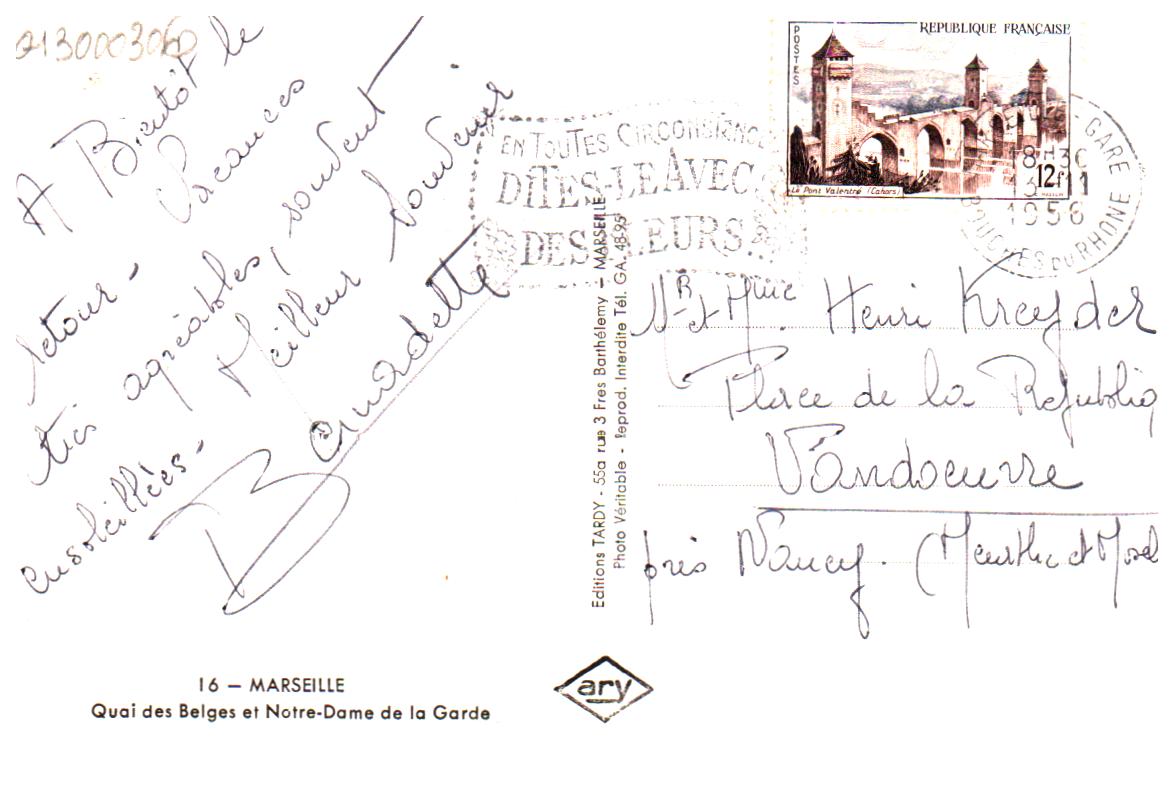 2130003060
A Bientôt le
retour - Vacances
très agréables, souvent
ensoleillées - Meilleur Souvenir
Bernadette
16 — MARSEILLE
Quai des Belges et Notre-Dame de la Garde
Editions TARDY - 55a rue 3 Fres Barthélemy — MARSEILLE
Photo Véritable - Reprod. Interdite Tél. GA. 48-95
ary
EN TOUTES CIRCONSTANCES
DITES-LE AVEC
DES FLEURS...
POSTES
REPUBLIQUE FRANÇAISE
Le Pont Valentré (Cahors)
12f
GARE
8H30
1956
BOUCHES DU RHONE
Mr et Mme. Henri Kreyder
Place de la Républiq
Vandoeuvre
près Nancy. (Meurthe et Mosel